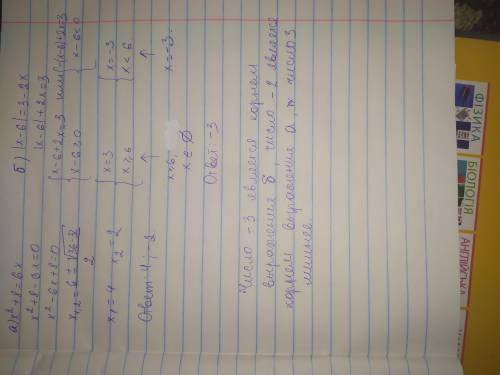 а) x²+8=6x
x²+8-6x=0
x²-6x+8=0
x₁,₂=6±√36-32
2
x₁=4 x₂=2
Ответ: 4; -2
б) |x-6|=3-2x
|x-6|+2x=3
{x-6+2x=3 или {-(x-6)+2x=3
{x-6≥0 {x-6<0
{x=3 {x=-3
{x≥6 {x<6
↑ ↑
x=-3.
x∈∅
Ответ: -3
Число -3 является корнем
выражения б, число -2 является
корнем выражения а, число 3
лишнее.
ФІЗИКА
БІОЛОГІЯ
АНГЛІЙСЬКА